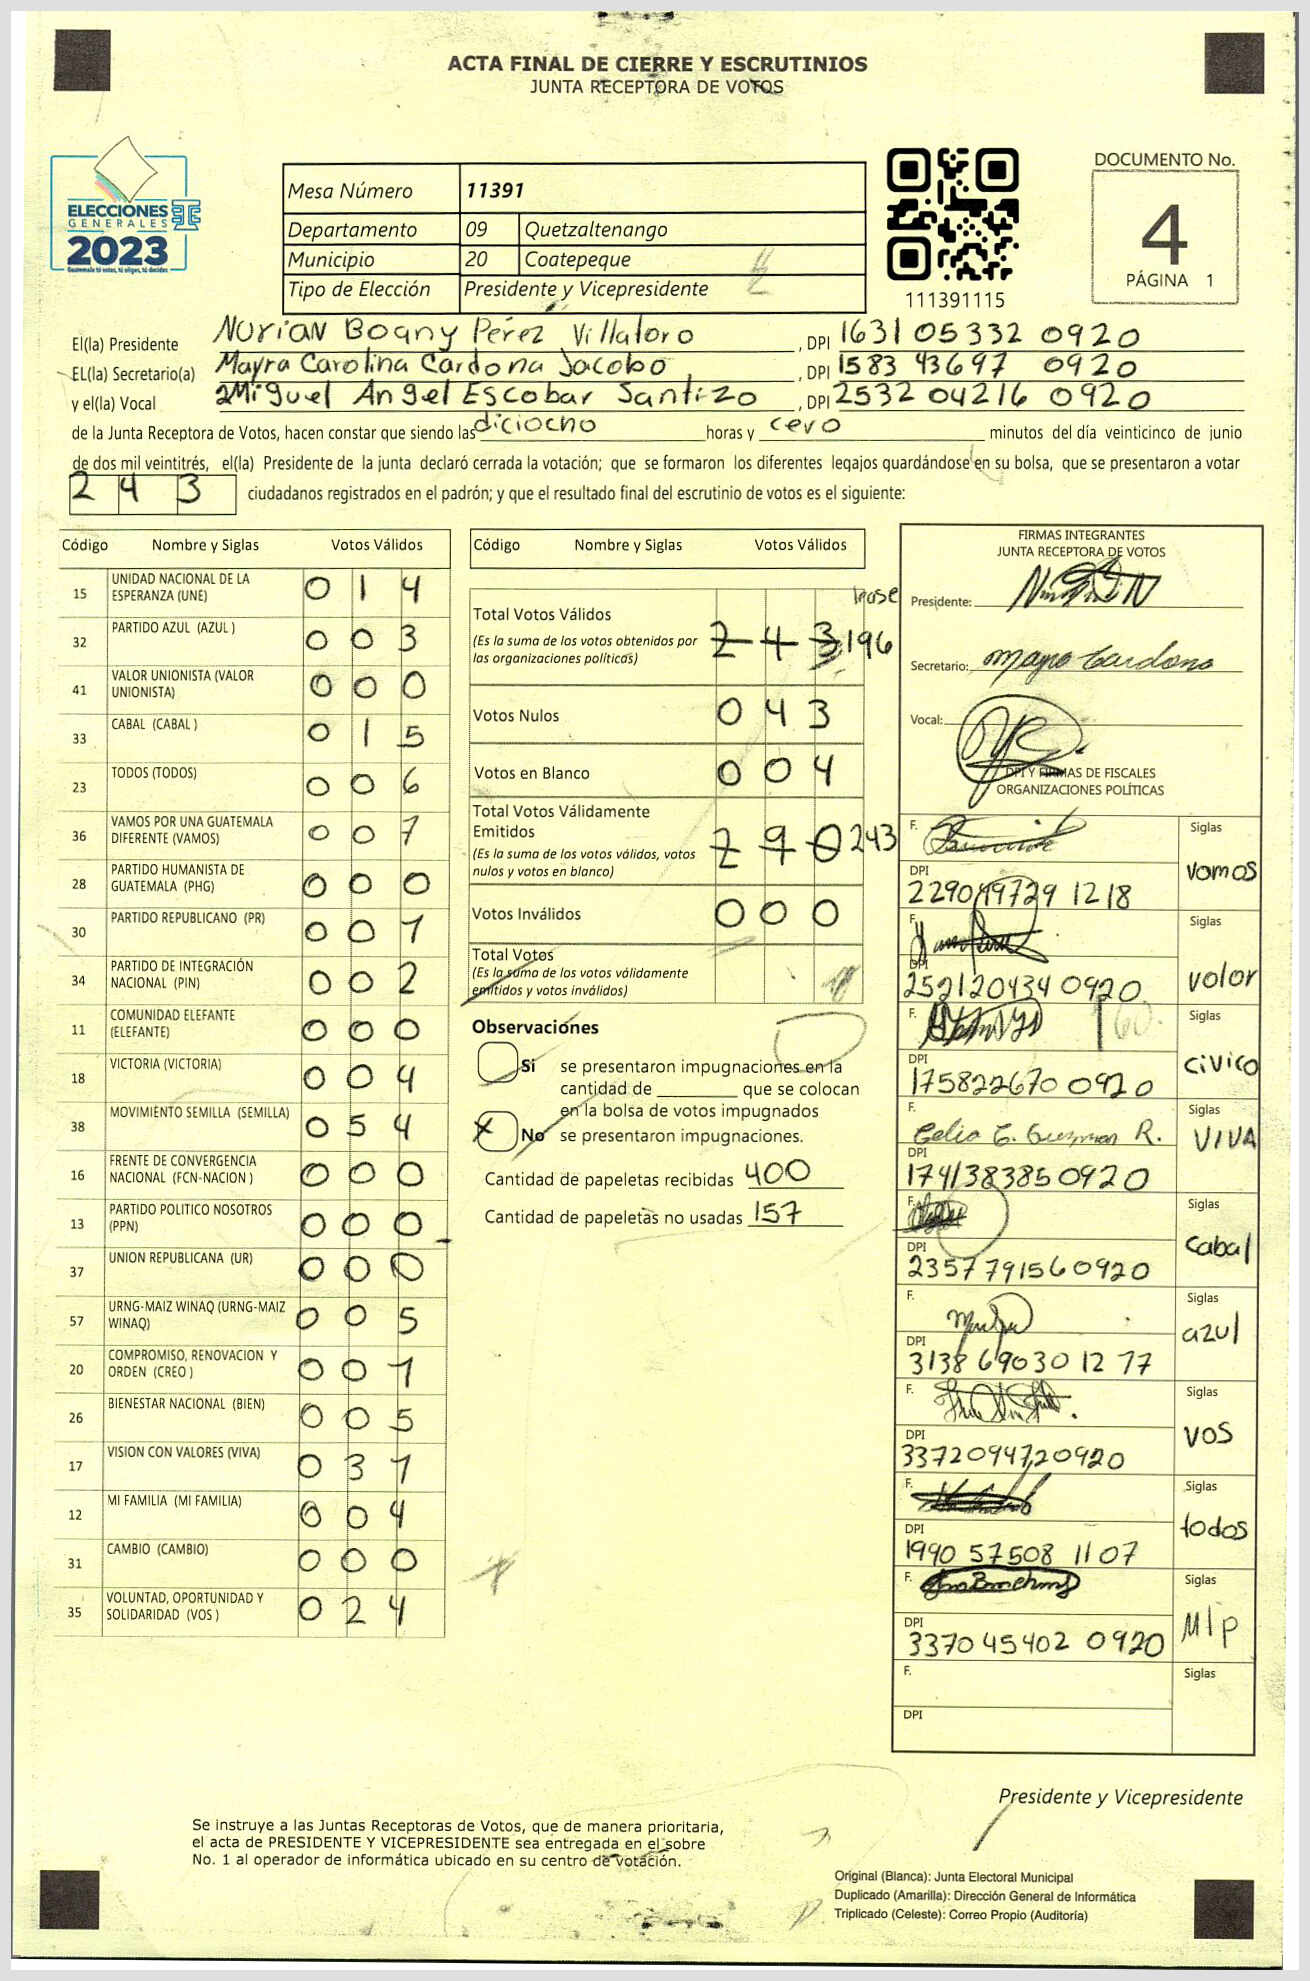 ACTA FINAL DE CIERRE Y ESCRUTINIOS
JUNTA RECEPTORA DE VOTOS
ELECCIONES
GENERALES
2023
Guatemala tú votas, tú eliges, tú decides
Mesa Número 11391
Departamento 09 Quetzaltenango
Municipio 20 Coatepeque
Tipo de Elección Presidente y Vicepresidente
111391115
DOCUMENTO No.
4
PÁGINA 1
El(la) Presidente Nurian Bogny Pérez Villatoro, DPI 1631 05332 0920
EL(la) Secretario(a) Mayra Carolina Cardona Jacobo, DPI 1583 43697 0920
y el(la) Vocal Miguel Angel Escobar Santizo, DPI 2532 04216 0920
de la Junta Receptora de Votos, hacen constar que siendo las diciocho horas y cero minutos del día veinticinco de junio
de dos mil veintitrés, el(la) Presidente de la junta declaró cerrada la votación; que se formaron los diferentes legajos guardándose en su bolsa, que se presentaron a votar
243 ciudadanos registrados en el padrón; y que el resultado final del escrutinio de votos es el siguiente:
Código Nombre y Siglas Votos Válidos
15 UNIDAD NACIONAL DE LA ESPERANZA (UNE) 0 1 4
32 PARTIDO AZUL (AZUL ) 0 0 3
41 VALOR UNIONISTA (VALOR UNIONISTA) 0 0 0
33 CABAL (CABAL ) 0 1 5
23 TODOS (TODOS) 0 0 6
36 VAMOS POR UNA GUATEMALA DIFERENTE (VAMOS) 0 0 7
28 PARTIDO HUMANISTA DE GUATEMALA (PHG) 0 0 0
30 PARTIDO REPUBLICANO (PR) 0 0 1
34 PARTIDO DE INTEGRACIÓN NACIONAL (PIN) 0 0 2
11 COMUNIDAD ELEFANTE (ELEFANTE) 0 0 0
18 VICTORIA (VICTORIA) 0 0 4
38 MOVIMIENTO SEMILLA (SEMILLA) 0 5 4
16 FRENTE DE CONVERGENCIA NACIONAL (FCN-NACION ) 0 0 0
13 PARTIDO POLITICO NOSOTROS (PPN) 0 0 0
37 UNION REPUBLICANA (UR) 0 0 0
57 URNG-MAIZ WINAQ (URNG-MAIZ WINAQ) 0 0 5
20 COMPROMISO, RENOVACION Y ORDEN (CREO ) 0 0 1
26 BIENESTAR NACIONAL (BIEN) 0 0 5
17 VISION CON VALORES (VIVA) 0 3 1
12 MI FAMILIA (MI FAMILIA) 0 0 4
31 CAMBIO (CAMBIO) 0 0 0
35 VOLUNTAD, OPORTUNIDAD Y SOLIDARIDAD (VOS ) 0 2 4
Código Nombre y Siglas Votos Válidos
Total Votos Válidos 2 4 3 196
(Es la suma de los votos obtenidos por
las organizaciones políticas)
Votos Nulos 0 4 3
Votos en Blanco 0 0 4
Total Votos Válidamente
Emitidos 2 9 0 243
(Es la suma de los votos válidos, votos
nulos y votos en blanco)
Votos Inválidos 0 0 0
Total Votos
(Es la suma de los votos válidamente
emitidos y votos inválidos)
Observaciones
Si se presentaron impugnaciones en la
cantidad de ________ que se colocan
en la bolsa de votos impugnados
X No se presentaron impugnaciones.
Cantidad de papeletas recibidas 400
Cantidad de papeletas no usadas 157
FIRMAS INTEGRANTES
JUNTA RECEPTORA DE VOTOS
Presidente:
Secretario: Mayra Cardona
Vocal:
DPI Y FIRMAS DE FISCALES
ORGANIZACIONES POLÍTICAS
F. Siglas
vamos
DPI
2290 49729 1218
F. Siglas
valor
DPI
252120434 0920
F. Siglas
civico
DPI
175822670 0920
F. Celia C. Guzman R. Siglas
VIVA
DPI
174138385 0920
F. Siglas
cabal
DPI
2357791560920
F. Siglas
azul
DPI
3138 69030 1277
F. Siglas
VOS
DPI
3372094720920
F. Siglas
todos
DPI
1990 57508 1107
F. Siglas
Mlp
DPI
3370 45402 0920
F. Siglas
DPI
Presidente y Vicepresidente
Se instruye a las Juntas Receptoras de Votos, que de manera prioritaria,
el acta de PRESIDENTE Y VICEPRESIDENTE sea entregada en el sobre
No. 1 al operador de informática ubicado en su centro de votación.
Original (Blanca): Junta Electoral Municipal
Duplicado (Amarilla): Dirección General de Informática
Triplicado (Celeste): Correo Propio (Auditoría)